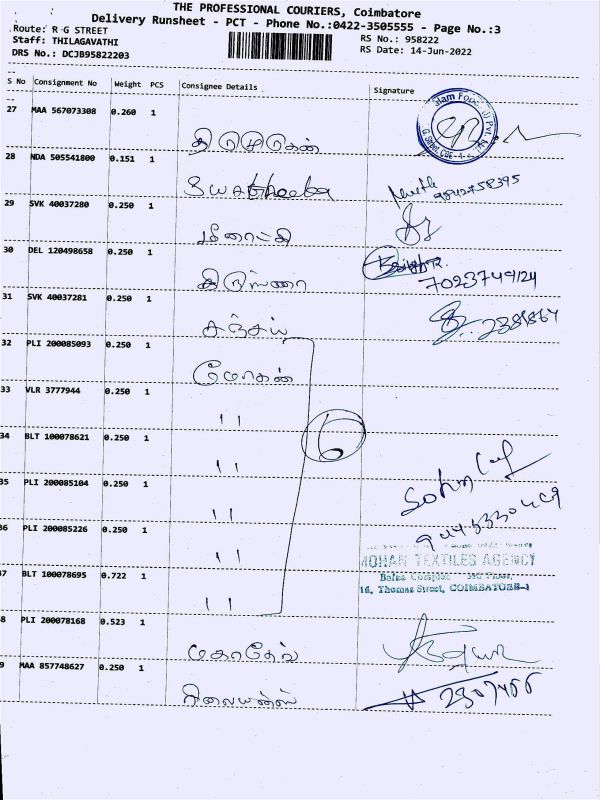 THE PROFESSIONAL COURIERS, Coimbatore
Delivery Runsheet - PCT - Phone No.:0422-3505555 - Page No.:3
Route: R G STREET
Staff: THILAGAVATHI
DRS No.: DCJB95822203
RS No.: 958222
RS Date: 14-Jun-2022
S No Consignment No Weight PCS Consignee Details Signature
27 MAA 567073308 0.260 1 திருமுருகன்
28 NDA 505541800 0.151 1
29 SVK 40037280 0.250 1 மீனாட்சி
30 DEL 120498658 0.250 1 கிருஸ்ணா 7023749124
31 SVK 40037281 0.250 1 சஞ்சய்
32 PLI 200085093 0.250 1 மோகன்
33 VLR 3777944 0.250 1 "
34 BLT 100078621 0.250 1 " 6
35 PLI 200085104 0.250 1 "
36 PLI 200085226 0.250 1 "
MOHAN TEXTILES AGENCY
16, Thomas Street, COIMBATORE-1
37 BLT 100078695 0.722 1 "
38 PLI 200078168 0.523 1
39 MAA 857748627 0.250 1 ரிலையன்ஸ்